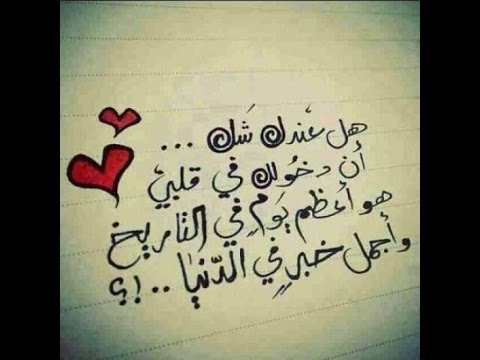 هل عندك شَك ...
أن دخُولك في قلبيْ
هو أعظم يَومٍ في التاريخ
وأجمل خبرٍ في الدّنيَا ..!؟